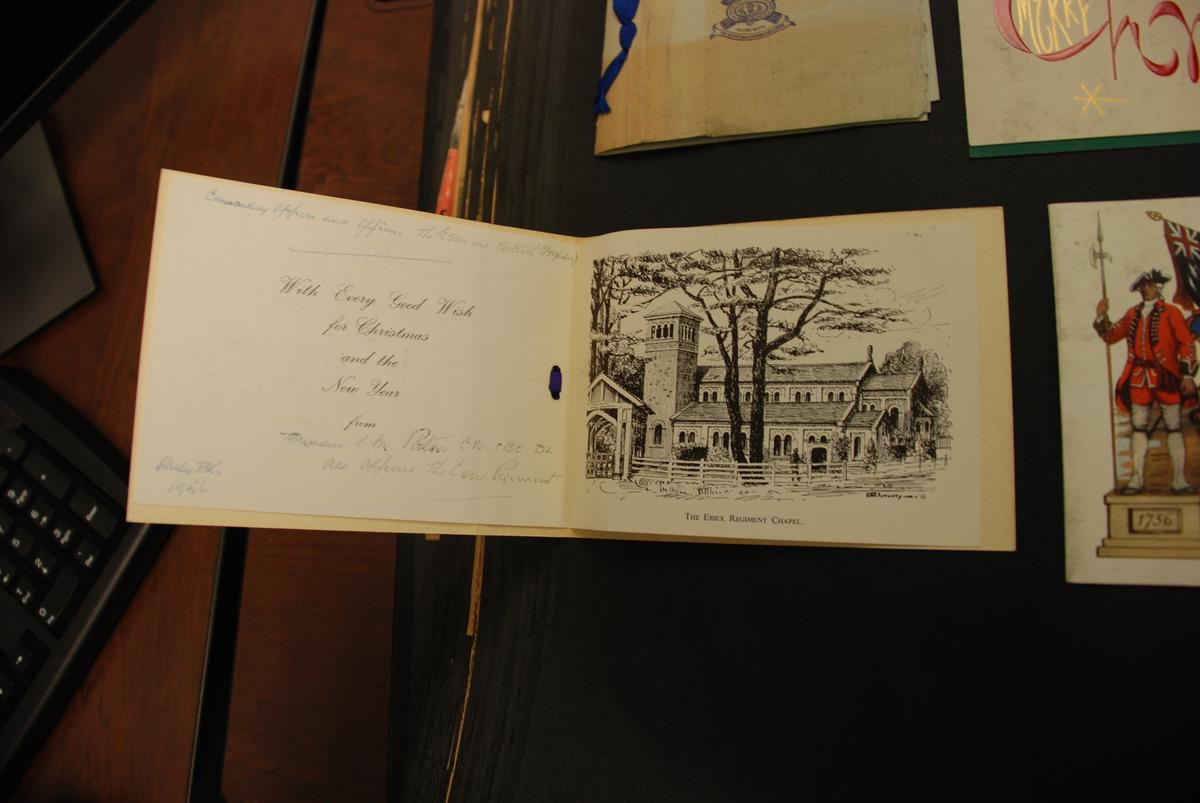 MERRY
Commanding Officer and Officers The Essex and Scottish
With Every Good Wish
for Christmas
and the
New Year
from
Brigadier C.M. CBE
and Officers The Essex Regiment
1956
THE ESSEX REGIMENT CHAPEL.
1756